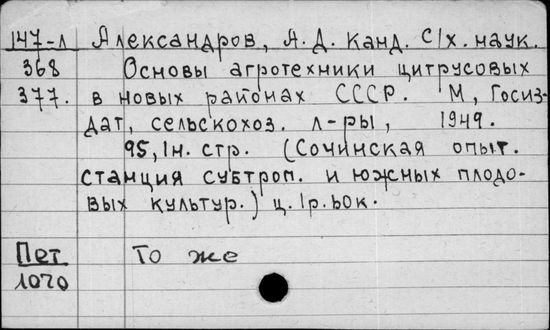 147-л Александров, А.Д. канд. с/х. наук.
368 Основы агротехники цитрусовых
377. в новых районах СССР. М, Госиз-
дат, сельскохоз. л-ры, 1949.
95, 1н. стр. (Сочинская опыт.
станция субтроп. и южных плодо-
вых культур.) ц. 1р. 60к.
Пет То же
1070